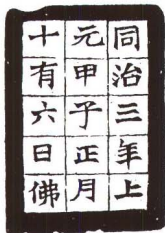 同治三年上
元甲子正月
十有六日佛